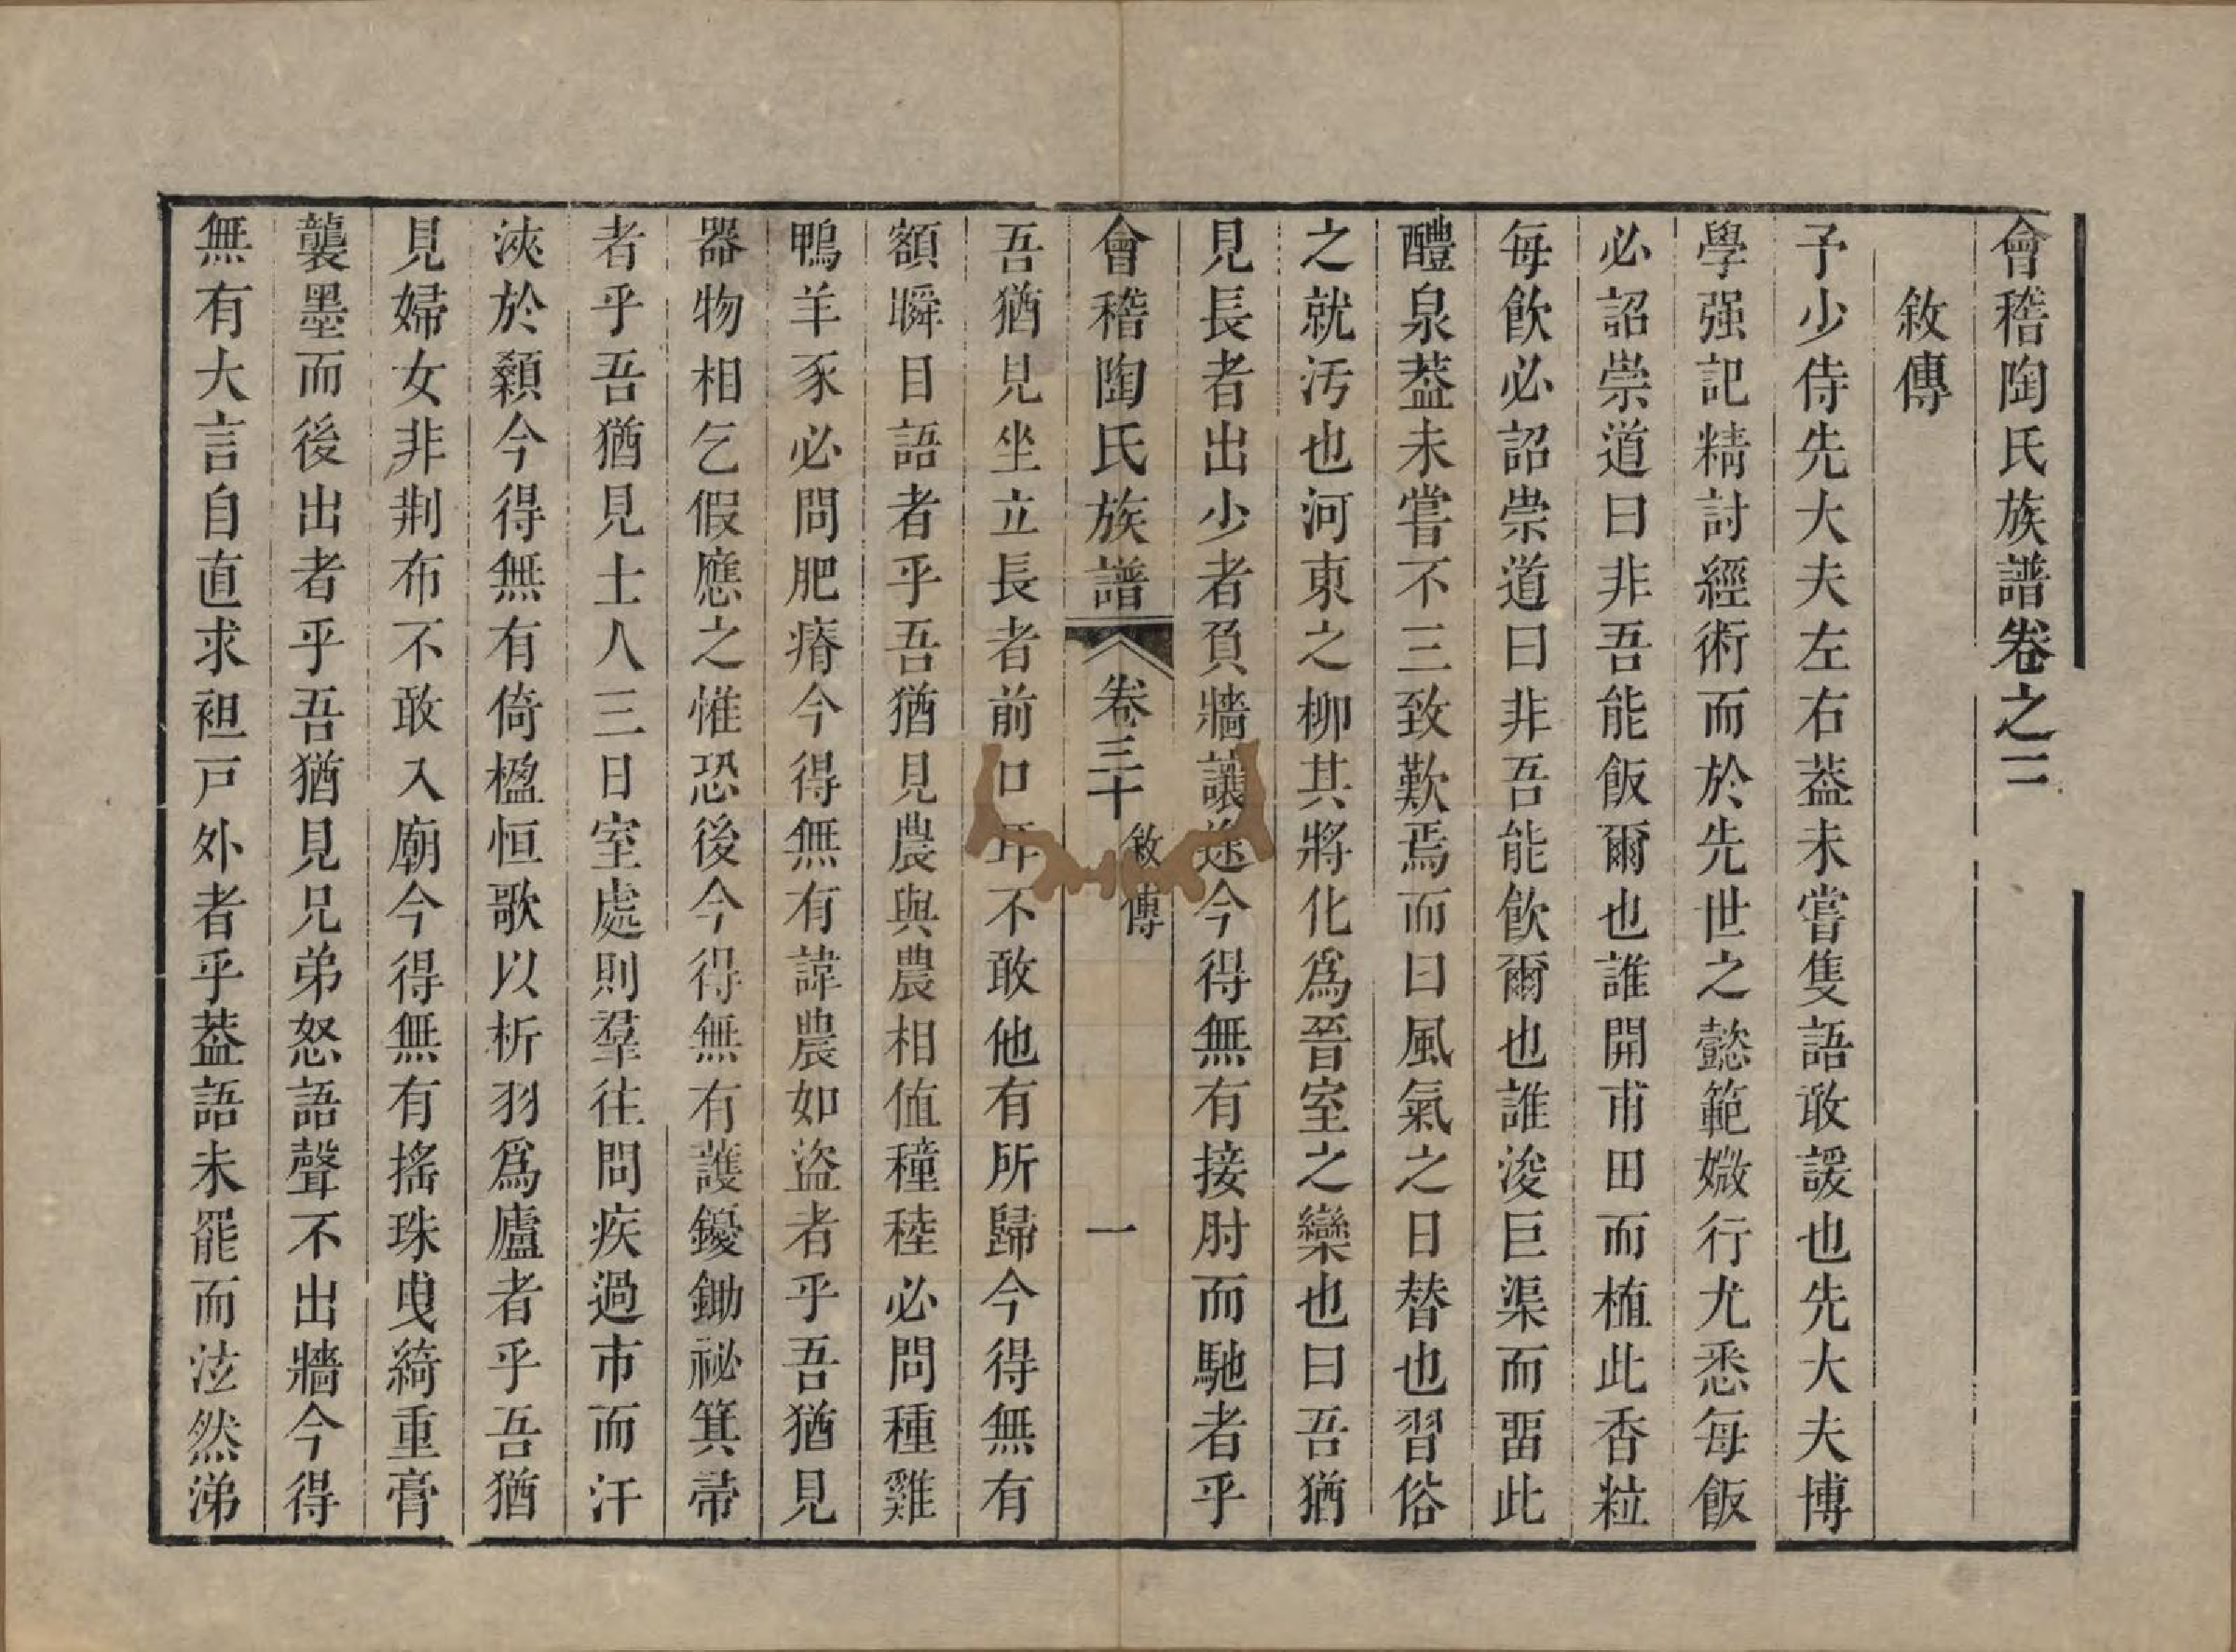 會稽陶氏族譜卷之三
敘傳
予少侍先大夫左右葢未嘗隻語敢諼也先大夫博
學强記精討經術而於先世之懿範媺行尤悉每飯
必詔崇道曰非吾能飯爾也誰開甫田而植此香粒
每飲必詔崇道曰非吾能飲爾也誰浚巨渠而畱此
醴泉葢未嘗不三致歎焉而曰風氣之日替也習俗
之就汚也河東之柳其將化爲晉室之欒也曰吾猶
見長者出少者負牆讓途今得無有接肘而馳者乎
會稽陶氏族譜 卷三十 敘傳 一
吾猶見坐立長者前口耳不敢他有所歸今得無有
額瞬目語者乎吾猶見農與農相值穜稑必問種雞
鴨羊豕必問肥瘠今得無有諱農如盜者乎吾猶見
器物相乞假應之惟恐後今得無有護鑀鋤祕箕帚
者乎吾猶見士人三日室處則羣往問疾過市而汗
浹於顙今得無有倚楹恒歌以析羽爲廬者乎吾猶
見婦女非荆布不敢入廟今得無有搖珠曳綺重膏
襲墨而後出者乎吾猶見兄弟怒語聲不出牆今得
無有大言自直求袒戸外者乎葢語未罷而泫然涕